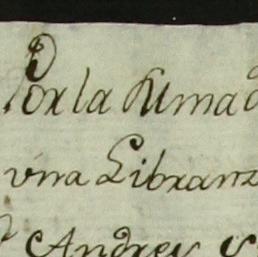 Por la Suma d
vna Libranz
Andrey